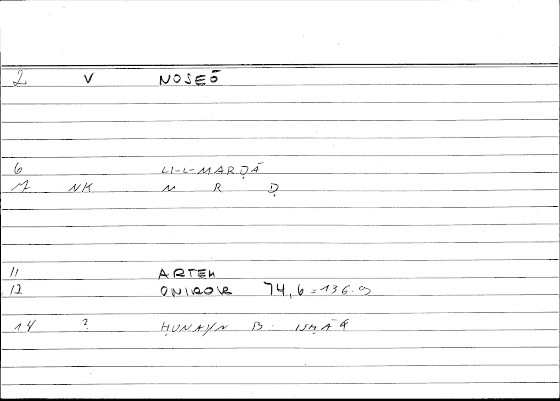 2 V NOSEŌ
6 LI-L-MARḌĀ
7 NK M R Ḍ
11 ARTEM
12 ONIROK 74,6=136.9
14 ? ḤUNAYN B. ISḤĀQ